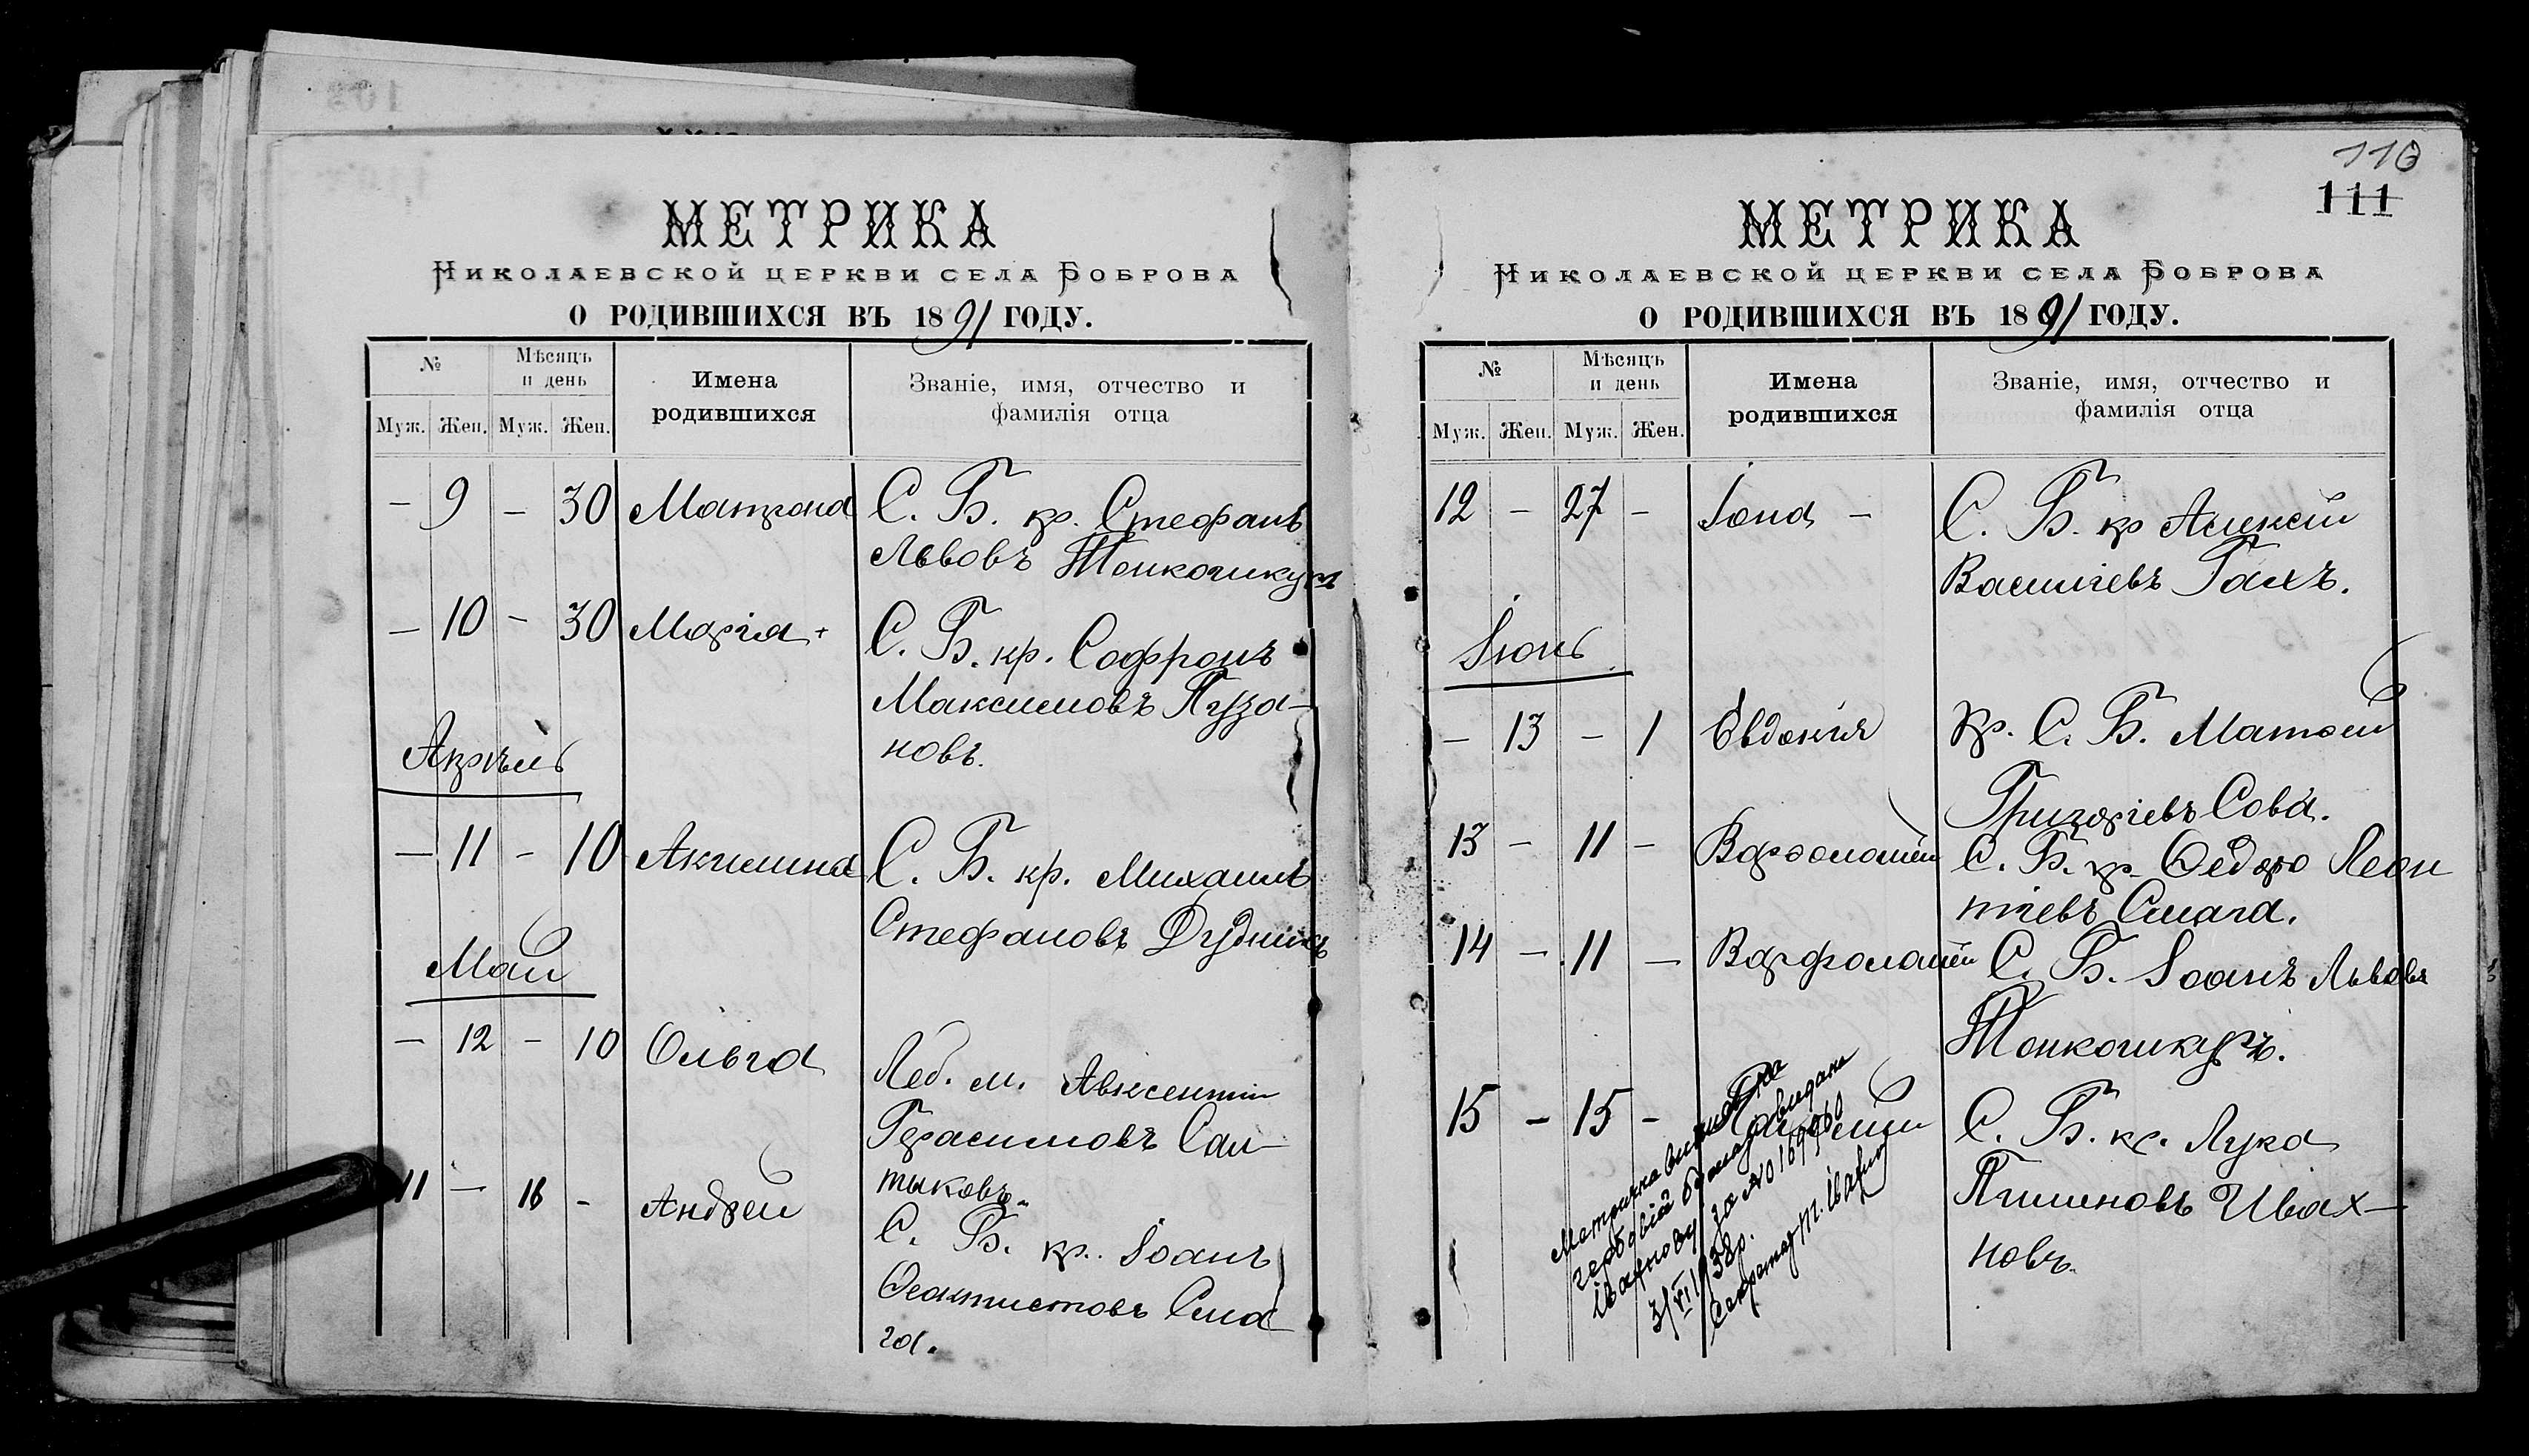 МЕТРИКА
Николаевской церкви села Боброва
О РОДИВШИХСЯ ВЪ 1891 ГОДУ.
№
Мѣсяцъ и день
Имена родившихся
Званіе, имя, отчество и фамилія отца
Муж. Жен. Муж. Жен.
– 9 – 30 Матрона С. Б. кр. Стефанъ
Львовъ Тонкошкуръ
– 10 – 30 Марія + С. Б. кр. Софронъ
Максимовъ Пуза-
новъ.
Апрѣль
– 11 – 10 Акилина С. Б. кр. Михаилъ
Стефановъ Дудникъ
Май
– 12 – 10 Ольга Леб. м. Авксентій
Герасимовъ Сал-
тыковъ.
11 – 16 – Андрей С. Б. кр. Іоанъ
Феоктистовъ Сма
га.
110
111
МЕТРИКА
Николаевской церкви села Боброва
О РОДИВШИХСЯ ВЪ 1891 ГОДУ.
№
Мѣсяцъ и день
Имена родившихся
Званіе, имя, отчество и фамилія отца
Муж. Жен. Муж. Жен.
12 – 27 – Іона – С. Б. кр Алексѣй
Василіевъ Галъ.
Іюнь
– 13 – 1 Евдокія кр. С. Б. Матѳей
Григоріевъ Сова.
13 – 11 – Варѳоломѣй С. Б. кр. Ѳедоръ Леон
тіевъ Смага.
14 – 11 – Варфоломѣй С. Б. Іоанъ Львовъ
Тонкошкуръ.
15 – 15 – С. Б. кр. Лука
Пименовъ Ивах-
новъ.
Метрична виписка
гербовій бумазі видана
Івахнову за № 169960
3/VI 1938р.
Секретар